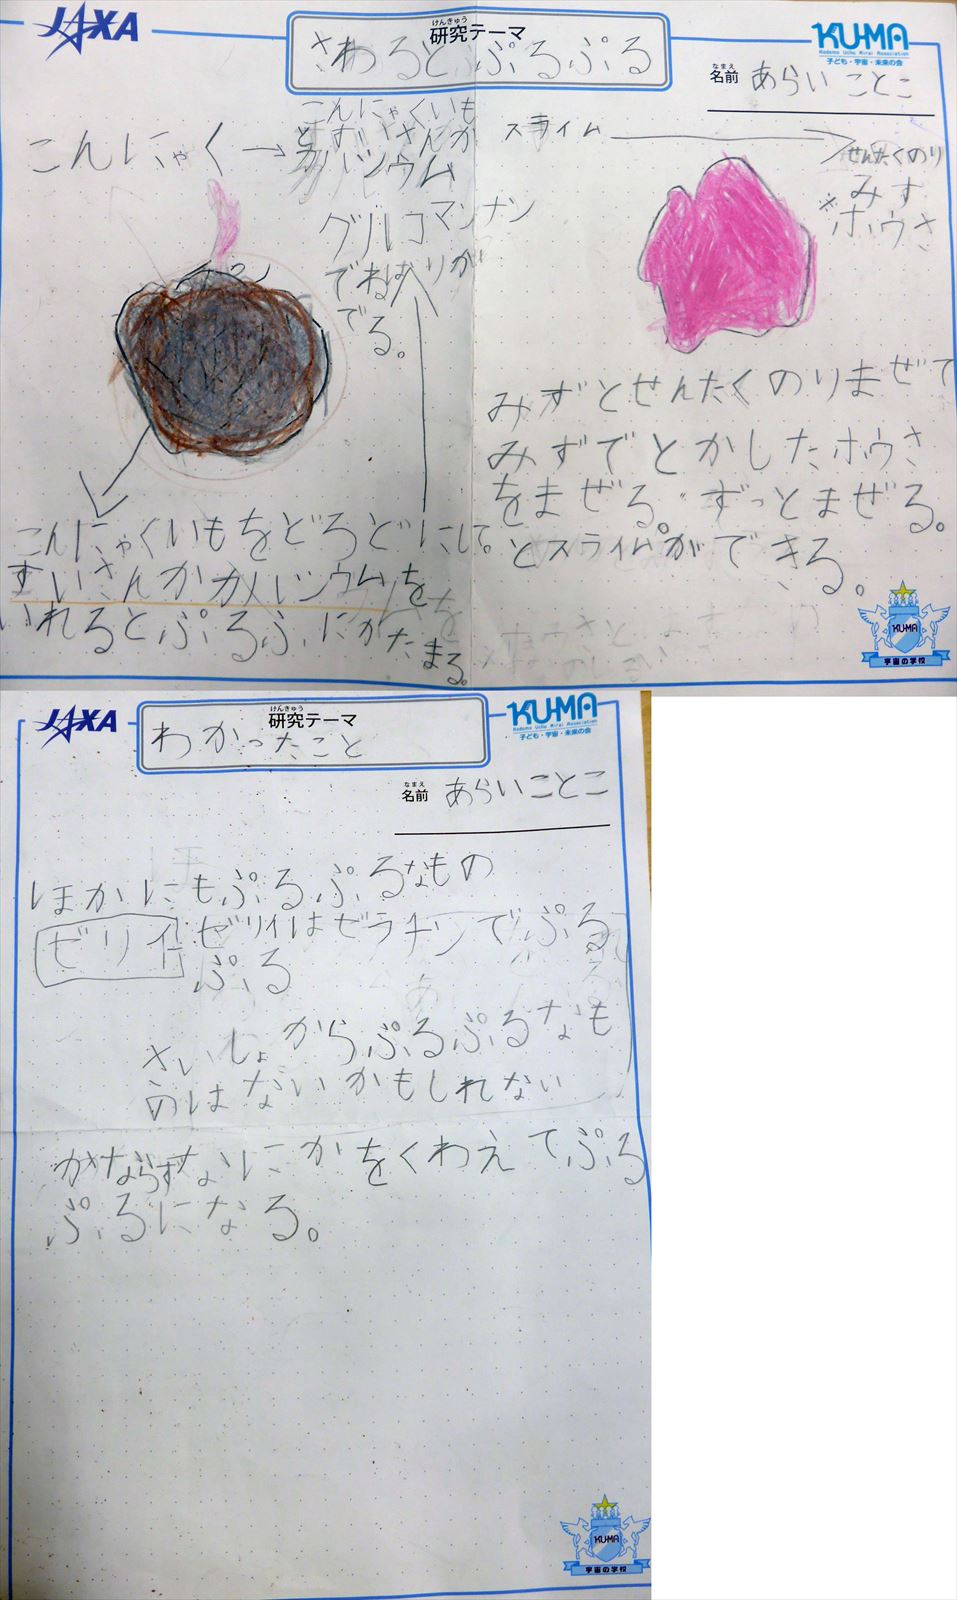 JAXA
けんきゅう
研究テーマ
さわるとぷるぷる
KU-MA
Kodomo Uchu Mirai Association
子ども・宇宙・未来の会
なまえ
名前 あらい ことこ
こんにゃく→
こんにゃくいも
と すいさんか
カルシウム
グルコマンナン
でねばりが
でる。
こんにゃくいもをどろどにして
すいさんかカルシウムを
いれるとぷるぷにかたまる。
スライム
せんたくのり
みず
ホウさ
みずとせんたくのりまぜて
みずでとかしたホウさ
をまぜる。ずっとまぜる。
とスライムができる。
KU-MA
宇宙の学校
JAXA
けんきゅう
研究テーマ
わかったこと
KU-MA
Kodomo Uchu Mirai Association
子ども・宇宙・未来の会
なまえ
名前 あらいことこ
ほかにもぷるぷるなもの
ゼリイ ゼリイはゼラチンでぷる
ぷる
さいしょからぷるぷるなも
のはないかもしれない
かならずなにかをくわえてぷる
ぷるになる。
KU-MA
宇宙の学校